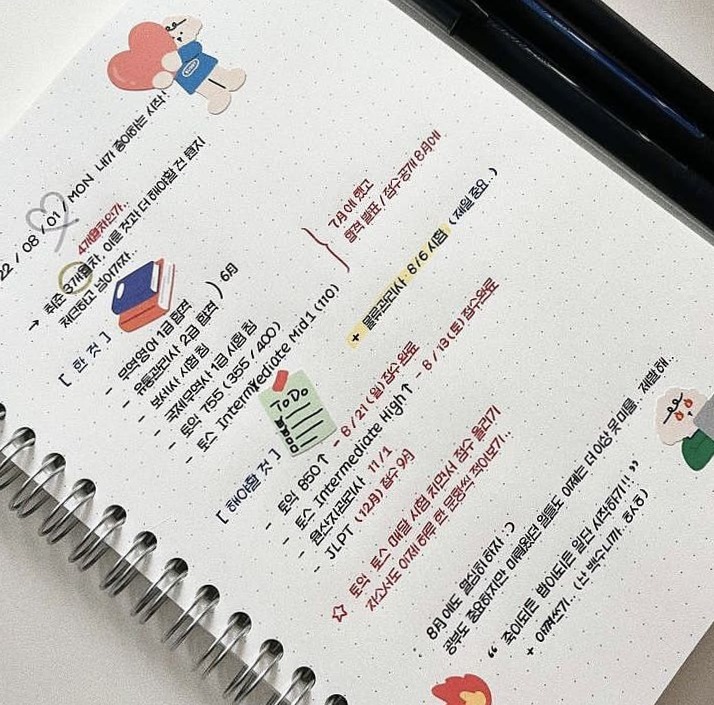 22 / 08 / 01 / MON 내가 좋아하는 시작!
4개월차인가..
→ 취준 3개월차, 이룬 것과 더 해야할 건 뭔지
체크하고 넘어가자..
[ 한 것 ]
- 무역영어 1급 합격
- 유통관리사 2급 합격 ) 6월
- 보세사 시험 침
- 국제무역사 1급 시험 침
- 토익 755 (355 / 400)
- 토스 Intermediate Mid1 (110)
7월에 했고
합격 발표 / 점수공개 8月에
+ 물류관리사 8/6 시험 (제일 중요..)
ToDo
[ 해야할 것 ]
- 토익 850↑ - 8 / 21 (일) 접수완료
- 토스 Intermediate High↑ - 8 / 13 (토) 접수완료
- 원산지관리사 11/1
- JLPT (12月) 접수 9月
☆ 토익 · 토스 매달 시험 치면서 점수 올리기
자소서도 이제 하루 한 문항씩 적어보기..
8月에도 열심히 하자 :)
공부도 중요하지만 미뤄왔던 일들도 이제는 더 이상 못 미룸.. 제발 해..
“ 죽이되든 밥이되든 일단 시작하기!! ”
+ 아껴쓰기.. (난 백수니까.. 하하)